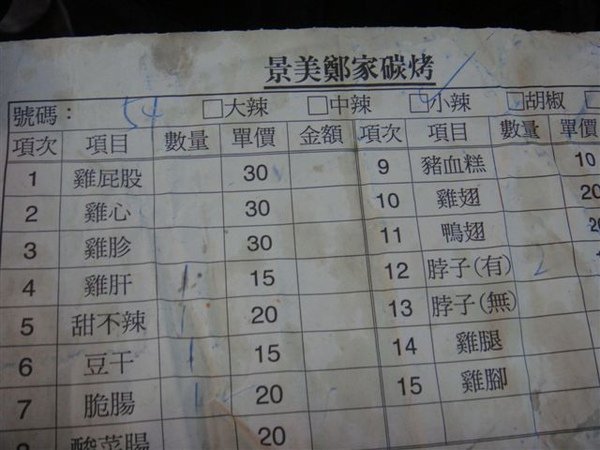 景美鄭家碳烤
號碼： 54 □大辣 □中辣 □小辣 □胡椒
項次 項目 數量 單價 金額 項次 項目 數量 單價
1 雞屁股 30 9 豬血糕 10
2 雞心 30 10 雞翅 20
3 雞胗 30 11 鴨翅 20
4 雞肝 1 15 12 脖子(有) 2
5 甜不辣 1 20 13 脖子(無)
6 豆干 1 15 14 雞腿
7 脆腸 1 20 15 雞腳
酸菜腸 20